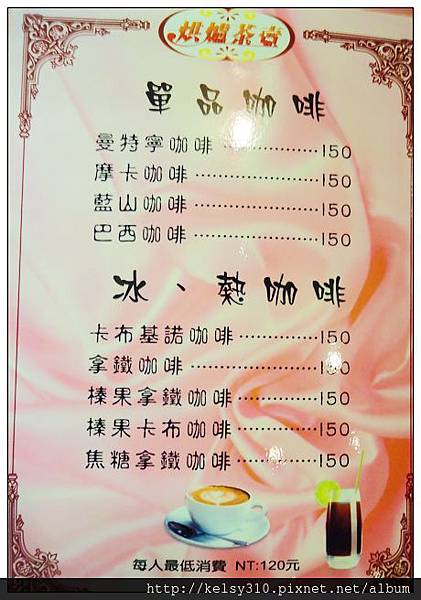 烘爐茶壺
單品咖啡
曼特寧咖啡 ………………150
摩卡咖啡 …………………150
藍山咖啡 …………………150
巴西咖啡 …………………150
冰、熱咖啡
卡布基諾咖啡 ……………150
拿鐵咖啡 …………………150
榛果拿鐵咖啡 ……………150
榛果卡布咖啡 ……………150
焦糖拿鐵咖啡 ……………150
每人最低消費 NT:120元
http://kelsy310.pixnet.net/album